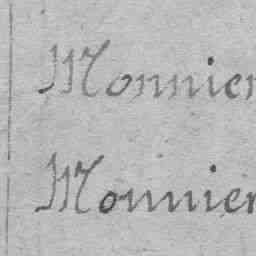 Monnier
Monnier